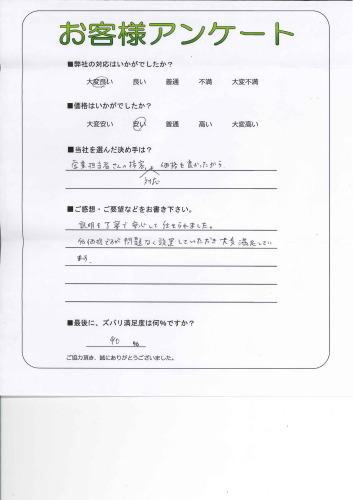 お客様アンケート
■弊社の対応はいかがでしたか？
大変良い 良い 普通 不満 大変不満
■価格はいかがでしたか？
大変安い 安い 普通 高い 大変高い
■当社を選んだ決め手は？
営業担当者さんの接客、価格も良かったから
対応
■ご感想・ご要望などをお書き下さい。
説明も丁寧で安心して任せられました。
低価格ですが問題なく設置していただき大変満足してい
ます。
■最後に、ズバリ満足度は何％ですか？
90 %
ご協力頂き、誠にありがとうございました。